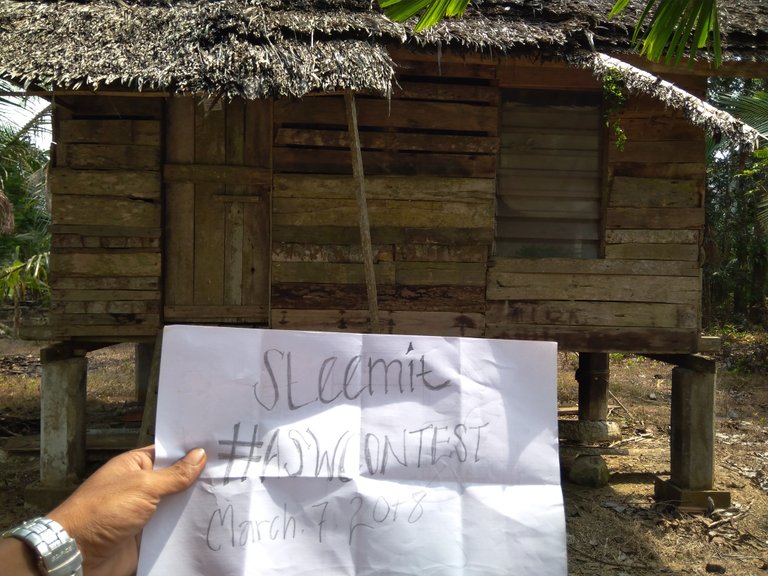 Steemit
#ASWCONTEST
March.7.2018